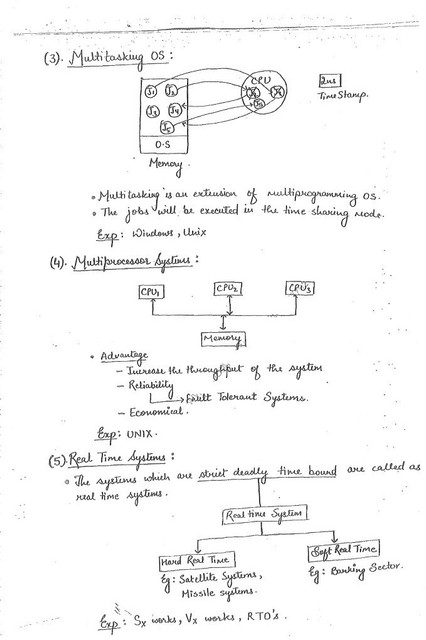 (3). Multitasking OS :
CPU
2ns
Time Stamp.
J1 J2
J3 J4
J5
O.S
Memory.
• Multitasking is an extension of multiprogramming OS.
• The jobs will be executed in the time sharing mode.
Exp: Windows, Unix
(4). Multiprocessor Systems :
CPU1 CPU2 CPU3
Memory
• Advantage
– Increase the throughput of the system
– Reliability
Fault Tolerant Systems.
– Economical.
Exp: UNIX.
(5). Real Time Systems :
• The systems which are strict deadly time bound are called as
real time systems.
Real time System
Hard Real Time Soft Real Time
Eg: Satellite Systems, Eg: Banking Sector.
Missile systems.
Exp: Sx works, Vx works, RTO's.